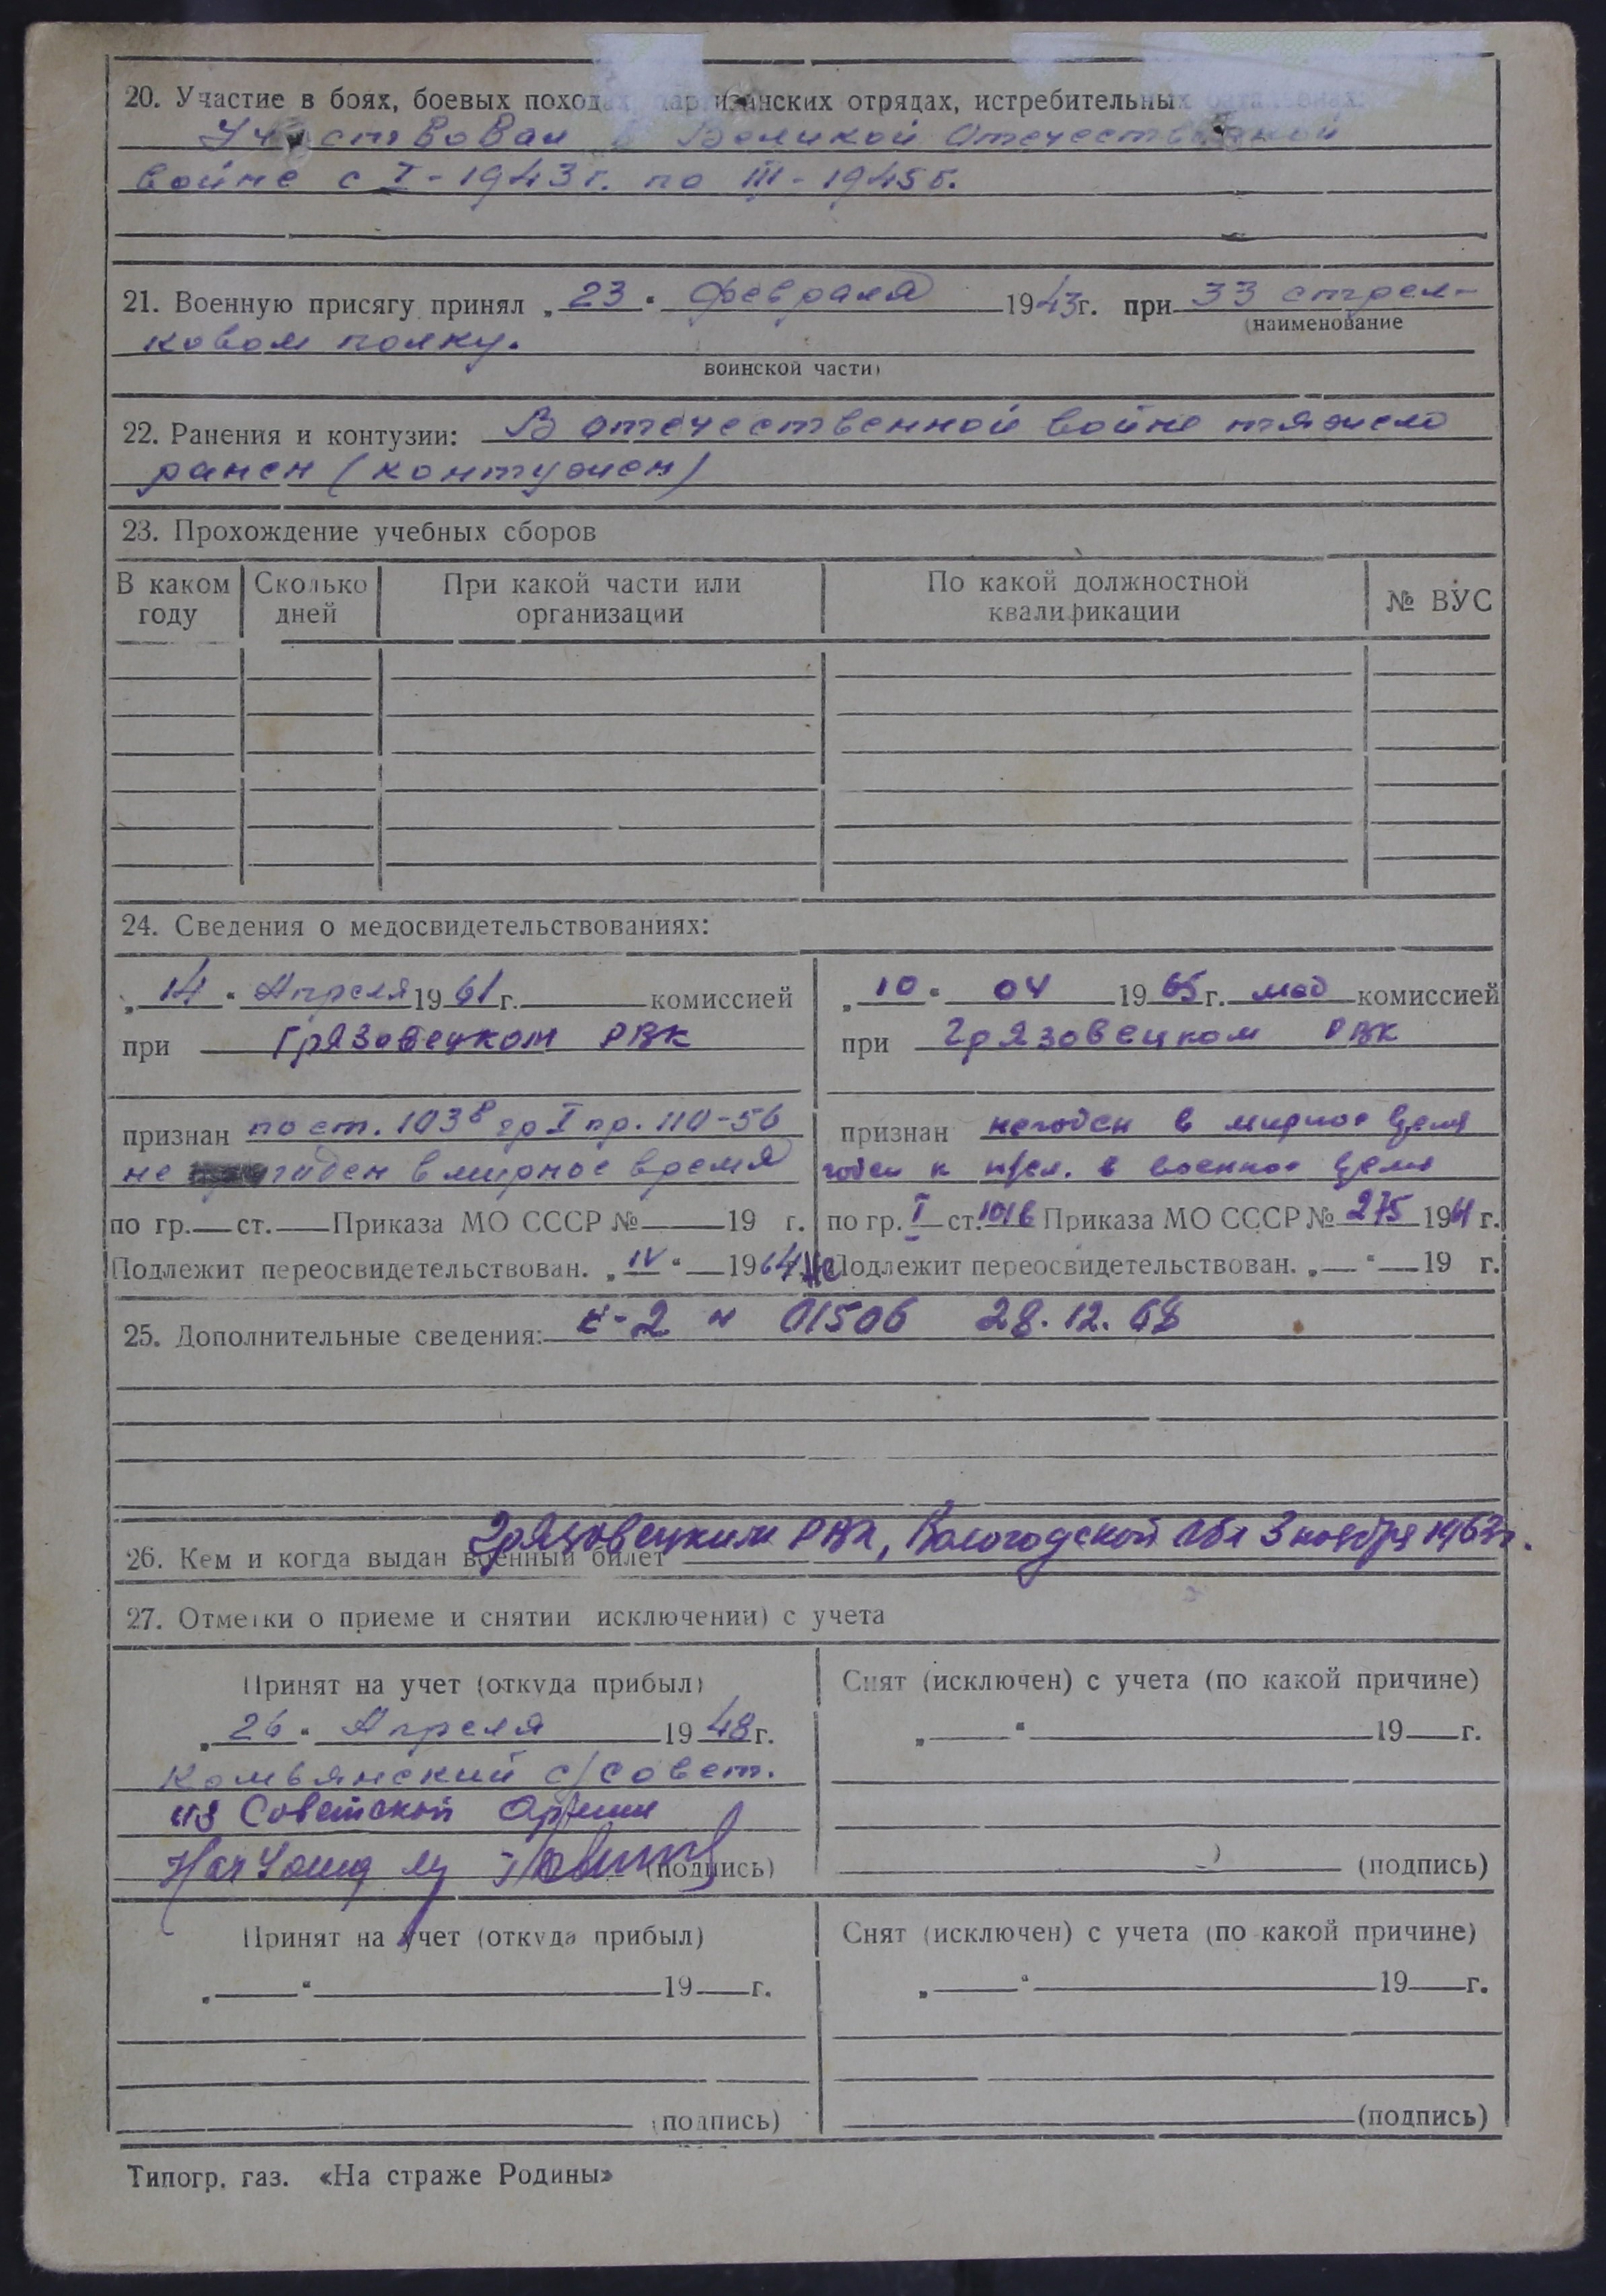 20. Участие в боях, боевых походах, партизанских отрядах, истребительных батальонах:
Участвовал в Великой Отечественной
войне с I-1943г. по III-1945г.
21. Военную присягу принял „23" февраля 1943г. при 33 стрел-
(наименование
ковом полку.
воинской части)
22. Ранения и контузии: В отечественной войне тяжело
ранен (контужен)
23. Прохождение учебных сборов
В каком году Сколько дней При какой части или организации По какой должностной квалификации № ВУС
24. Сведения о медосвидетельствованиях:
„14" Апреля 1961г. комиссией
при Грязовецком РВК
признан по ст. 103в гр I пр. 110-56
не годен в мирное время
по гр. ст. Приказа МО СССР № 19 г.
Подлежит переосвидетельствован. „IV" 1964
„10" 04 1965г. мед комиссией
при Грязовецком РВК
признан негоден в мирное время
годен к н/сл. в военное время
по гр. I ст. 101б Приказа МО СССР № 275 1964 г.
Не Подлежит переосвидетельствован. „ " 19 г.
25. Дополнительные сведения: 01506 28.12.68
26. Кем и когда выдан военный билет Грязовецким РВК, Вологодской обл 3 ноября 1963г.
27. Отметки о приеме и снятии исключении) с учета
Принят на учет (откуда прибыл)
„26" Апреля 1948г.
Комьянский с/совет.
из Советской Армии
(подпись)
Снят (исключен) с учета (по какой причине)
„ " 19 г.
(подпись)
Принят на учет (откуда прибыл)
„ " 19 г.
(подпись)
Снят (исключен) с учета (по какой причине)
„ " 19 г.
(подпись)
Типогр. газ. «На страже Родины»